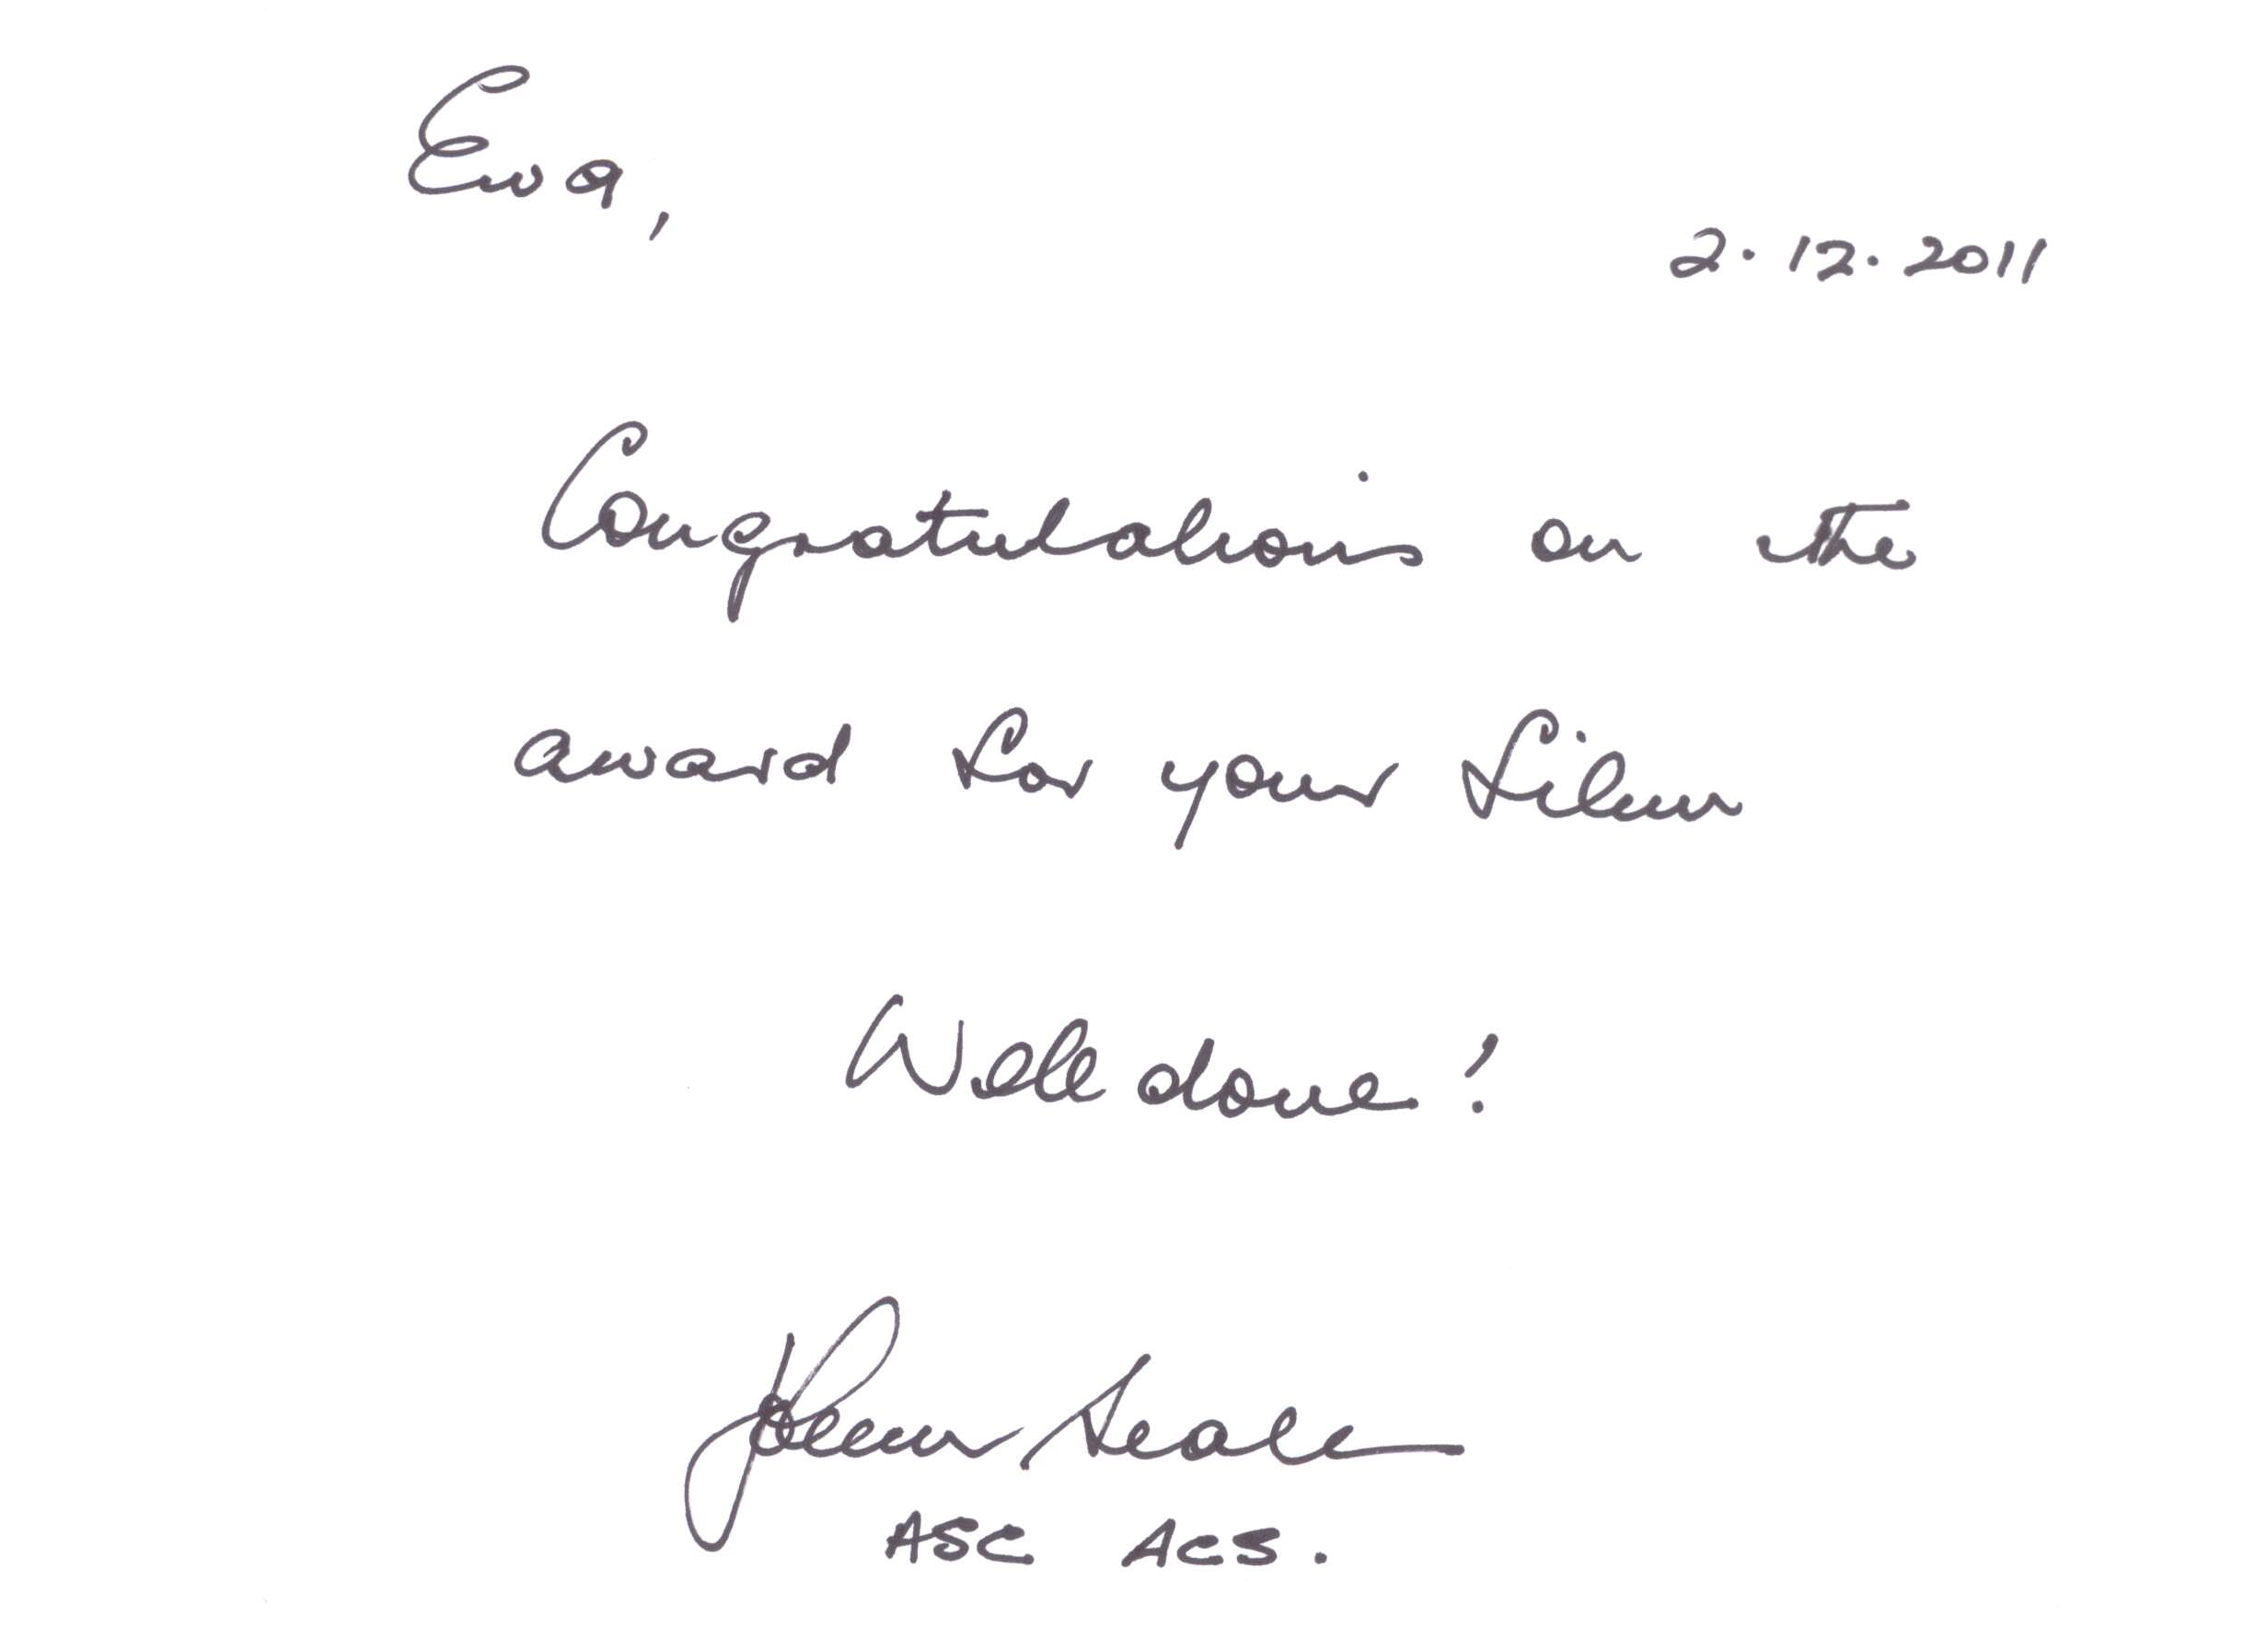 Ewa,
2.12.2011
Congratulations on the
award for your film
Well done!
John Seale
ASC ACS.